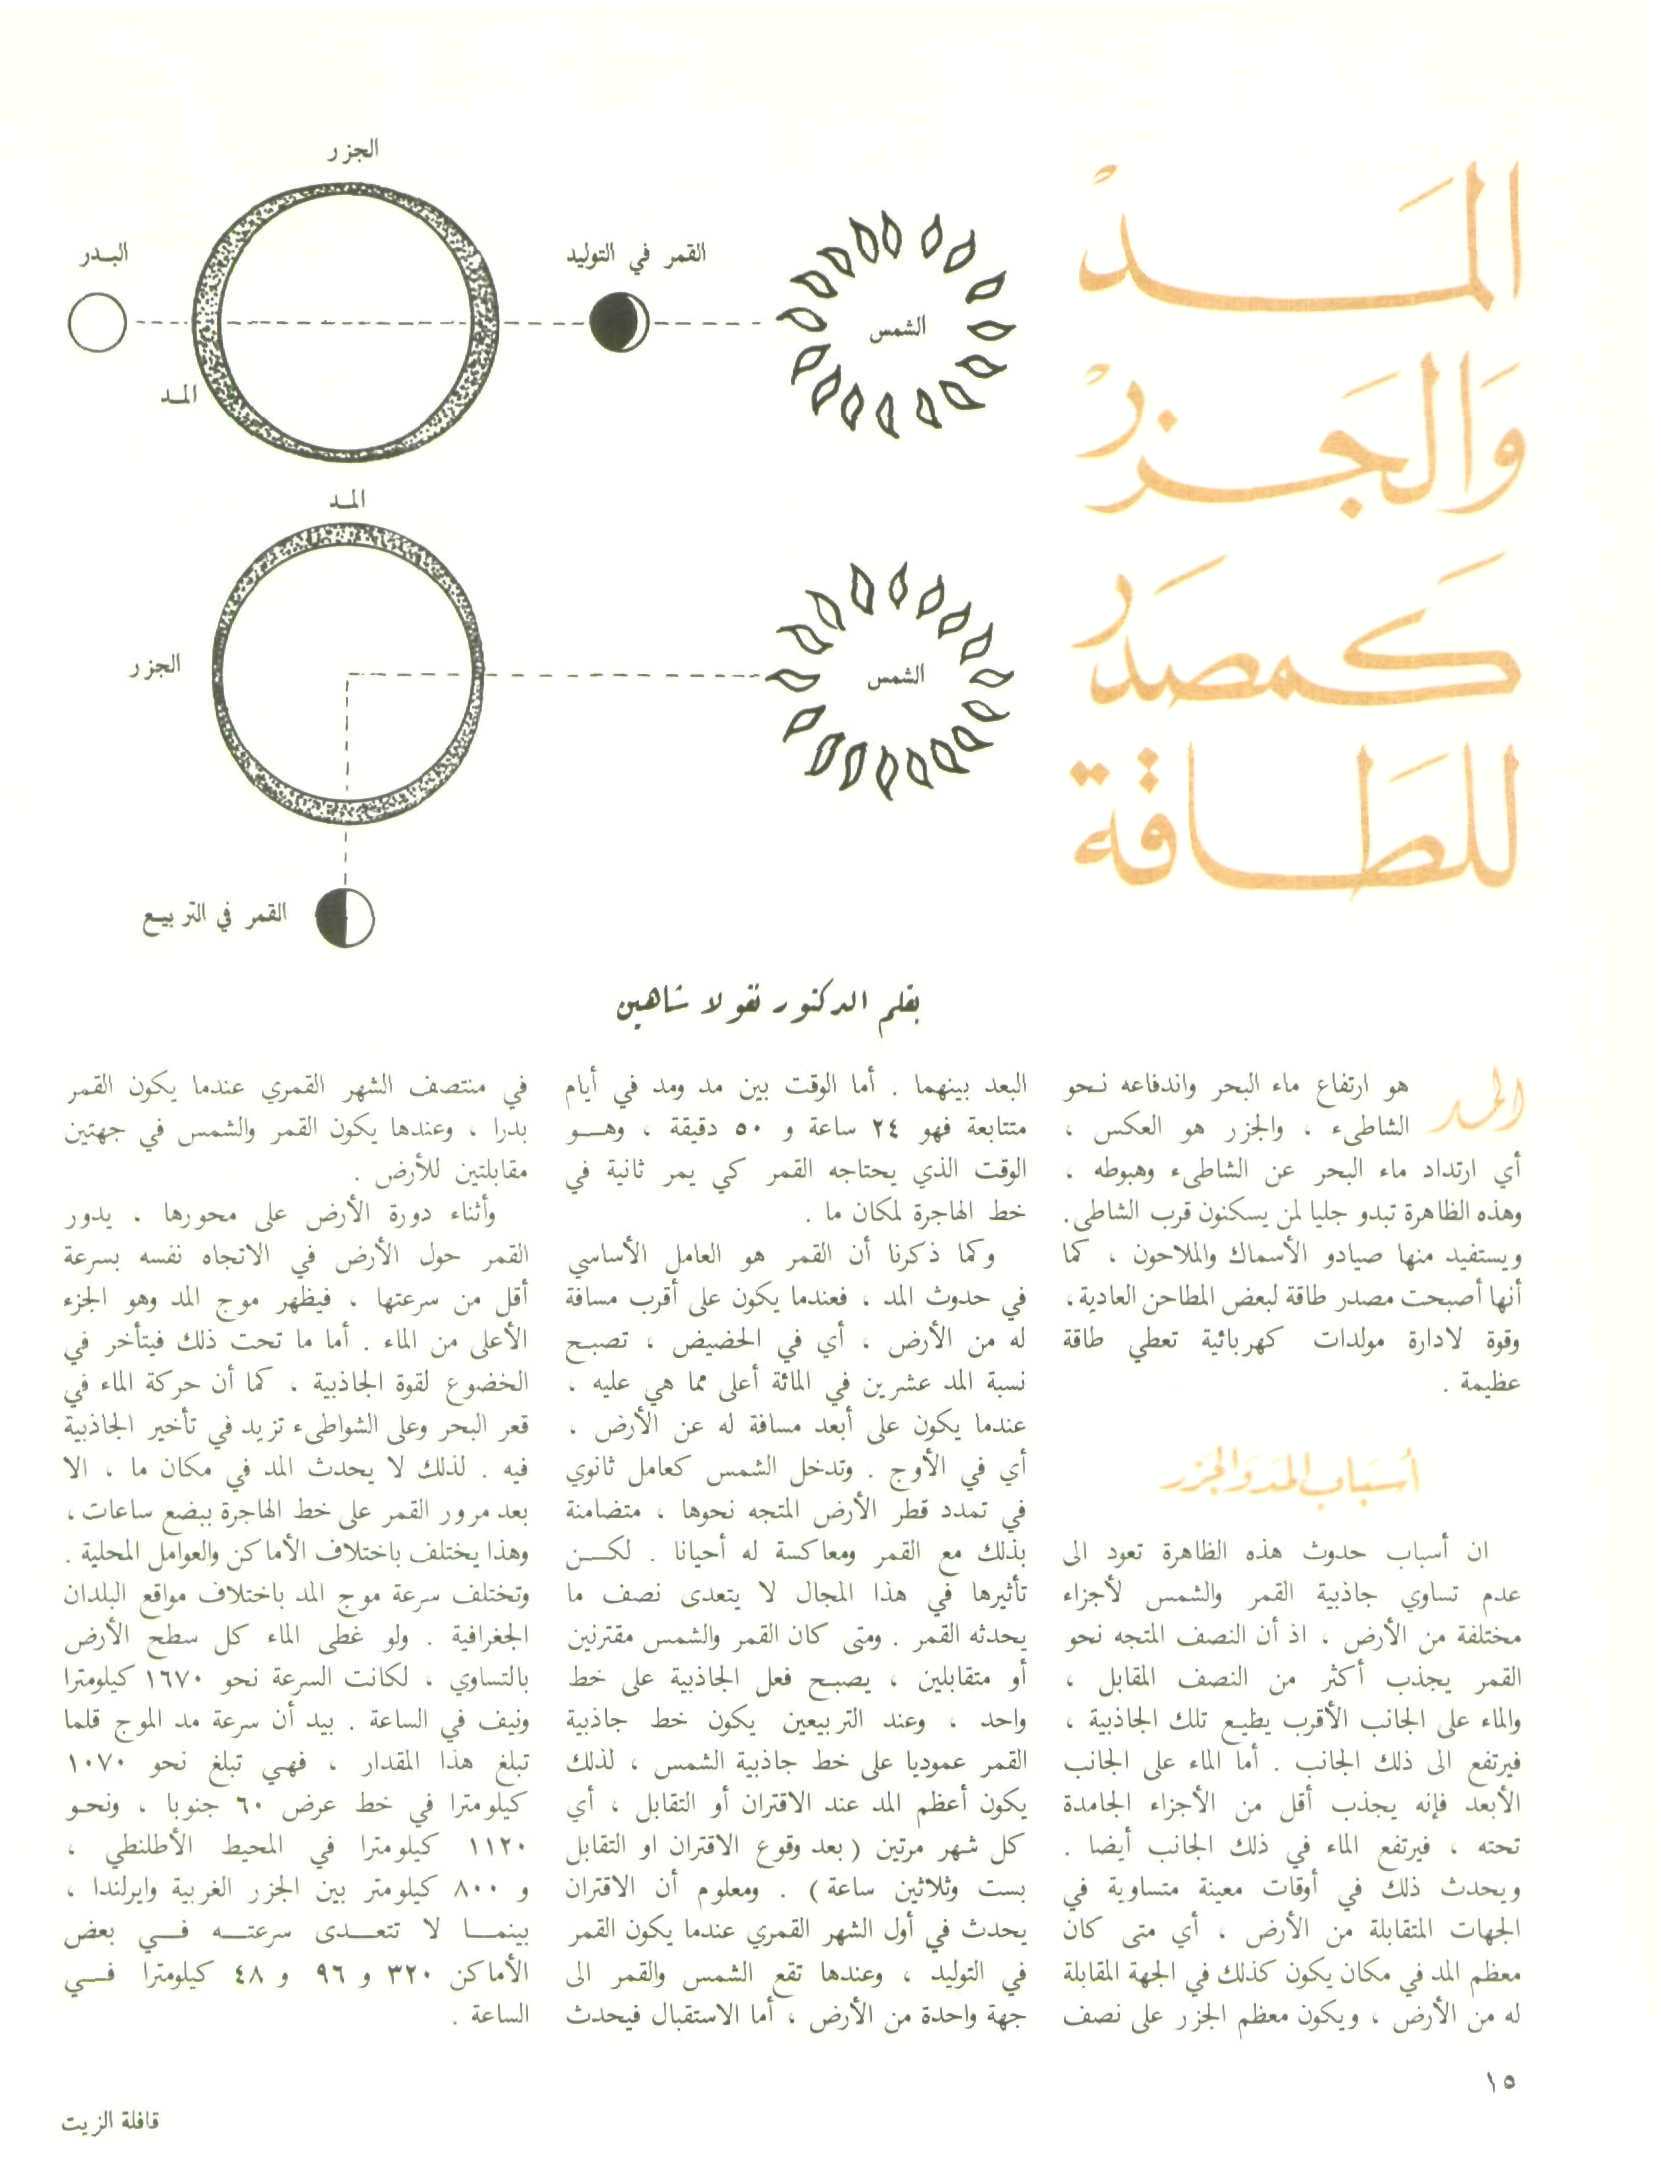 المَد
وَالجَزر
كَمصدَر
للطَاقة
الجزر
البدر
القمر في التوليد
الشمس
المد
المد
الجزر
الشمس
القمر في التربيع
بقلم الدكتور نقولا شاهين
المد هو ارتفاع ماء البحر واندفاعه نحو
الشاطىء ، والجزر هو العكس ،
أي ارتداد ماء البحر عن الشاطىء وهبوطه .
وهذه الظاهرة تبدو جليا لمن يسكنون قرب الشاطى.
ويستفيد منها صيادو الأسماك والملاحون ، كما
أنها أصبحت مصدر طاقة لبعض المطاحن العادية،
وقوة لادارة مولدات كهربائية تعطي طاقة
عظيمة .
أسبَاب المَد وَالجزر
ان أسباب حدوث هذه الظاهرة تعود الى
عدم تساوي جاذبية القمر والشمس لأجزاء
مختلفة من الأرض ، اذ أن النصف المتجه نحو
القمر يجذب أكثر من النصف المقابل ،
والماء على الجانب الأقرب يطيع تلك الجاذبية ،
فيرتفع الى ذلك الجانب . أما الماء على الجانب
الأبعد فإنه يجذب أقل من الأجزاء الجامدة
تحته ، فيرتفع الماء في ذلك الجانب أيضا .
ويحدث ذلك في أوقات معينة متساوية في
الجهات المتقابلة من الأرض ، أي متى كان
معظم المد في مكان يكون كذلك في الجهة المقابلة
له من الأرض ، ويكون معظم الجزر على نصف
البعد بينهما . أما الوقت بين مد ومد في أيام
متتابعة فهو ٢٤ ساعة و ٥٠ دقيقة ، وهو
الوقت الذي يحتاجه القمر كي يمر ثانية في
خط الهاجرة لمكان ما .
وكما ذكرنا أن القمر هو العامل الأساسي
في حدوث المد ، فعندما يكون على أقرب مسافة
له من الأرض ، أي في الحضيض ، تصبح
نسبة المد عشرين في المائة أعلى مما هي عليه ،
عندما يكون على أبعد مسافة له عن الأرض ،
أي في الأوج . وتدخل الشمس كعامل ثانوي
في تمدد قطر الأرض المتجه نحوها ، متضامنة
بذلك مع القمر ومعاكسة له أحيانا . لكن
تأثيرها في هذا المجال لا يتعدى نصف ما
يحدثه القمر . ومتى كان القمر والشمس مقترنين
أو متقابلين ، يصبح فعل الجاذبية على خط
واحد ، وعند التربيعين يكون خط جاذبية
القمر عموديا على خط جاذبية الشمس ، لذلك
يكون أعظم المد عند الاقتران أو التقابل ، أي
كل شهر مرتين ( بعد وقوع الاقتران او التقابل
بست وثلاثين ساعة ) . ومعلوم أن الاقتران
يحدث في أول الشهر القمري عندما يكون القمر
في التوليد ، وعندها تقع الشمس والقمر الى
جهة واحدة من الأرض ، أما الاستقبال فيحدث
في منتصف الشهر القمري عندما يكون القمر
بدرا ، وعندها يكون القمر والشمس في جهتين
مقابلتين للأرض .
وأثناء دورة الأرض على محورها . يدور
القمر حول الأرض في الاتجاه نفسه بسرعة
أقل من سرعتها ، فيظهر موج المد وهو الجزء
الأعلى من الماء . أما ما تحت ذلك فيتأخر في
الخضوع لقوة الجاذبية ، كما أن حركة الماء في
قعر البحر وعلى الشواطىء تزيد في تأخير الجاذبية
فيه . لذلك لا يحدث المد في مكان ما ، الا
بعد مرور القمر على خط الهاجرة ببضع ساعات،
وهذا يختلف باختلاف الأماكن والعوامل المحلية .
وتختلف سرعة موج المد باختلاف مواقع البلدان
الجغرافية . ولو غطى الماء كل سطح الأرض
بالتساوي ، لكانت السرعة نحو ١٦٧٠ كيلومترا
ونيف في الساعة . بيد أن سرعة مد الموج قلما
تبلغ هذا المقدار ، فهي تبلغ نحو ١٠٧٠
كيلومترا في خط عرض ٦٠ جنوبا ، ونحو
١١٢٠ كيلومترا في المحيط الأطلنطي ،
و ٨٠٠ كيلومتر بين الجزر الغربية وايرلندا ،
بينما لا تتعدى سرعته في بعض
الأماكن ٣٢٠ و ٩٦ و ٤٨ كيلومترا في
الساعة .
١٥
قافلة الزيت